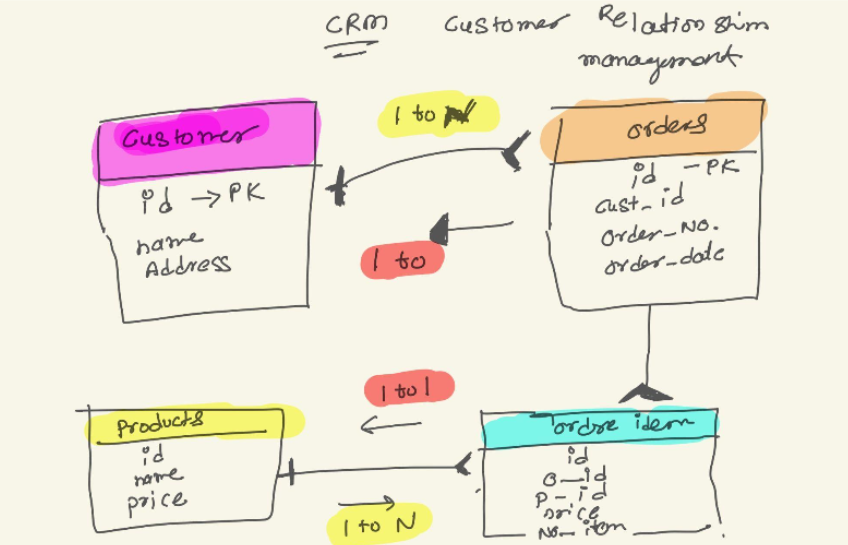 CRM Customer Relationship
management
1 to N
Customer
id → PK
name
Address
orders
id - PK
cust_id
order_No.
order_date
1 to
1 to 1
Products
id
name
price
1 to N
ordre idem
id
o_id
p-id
price
No_item